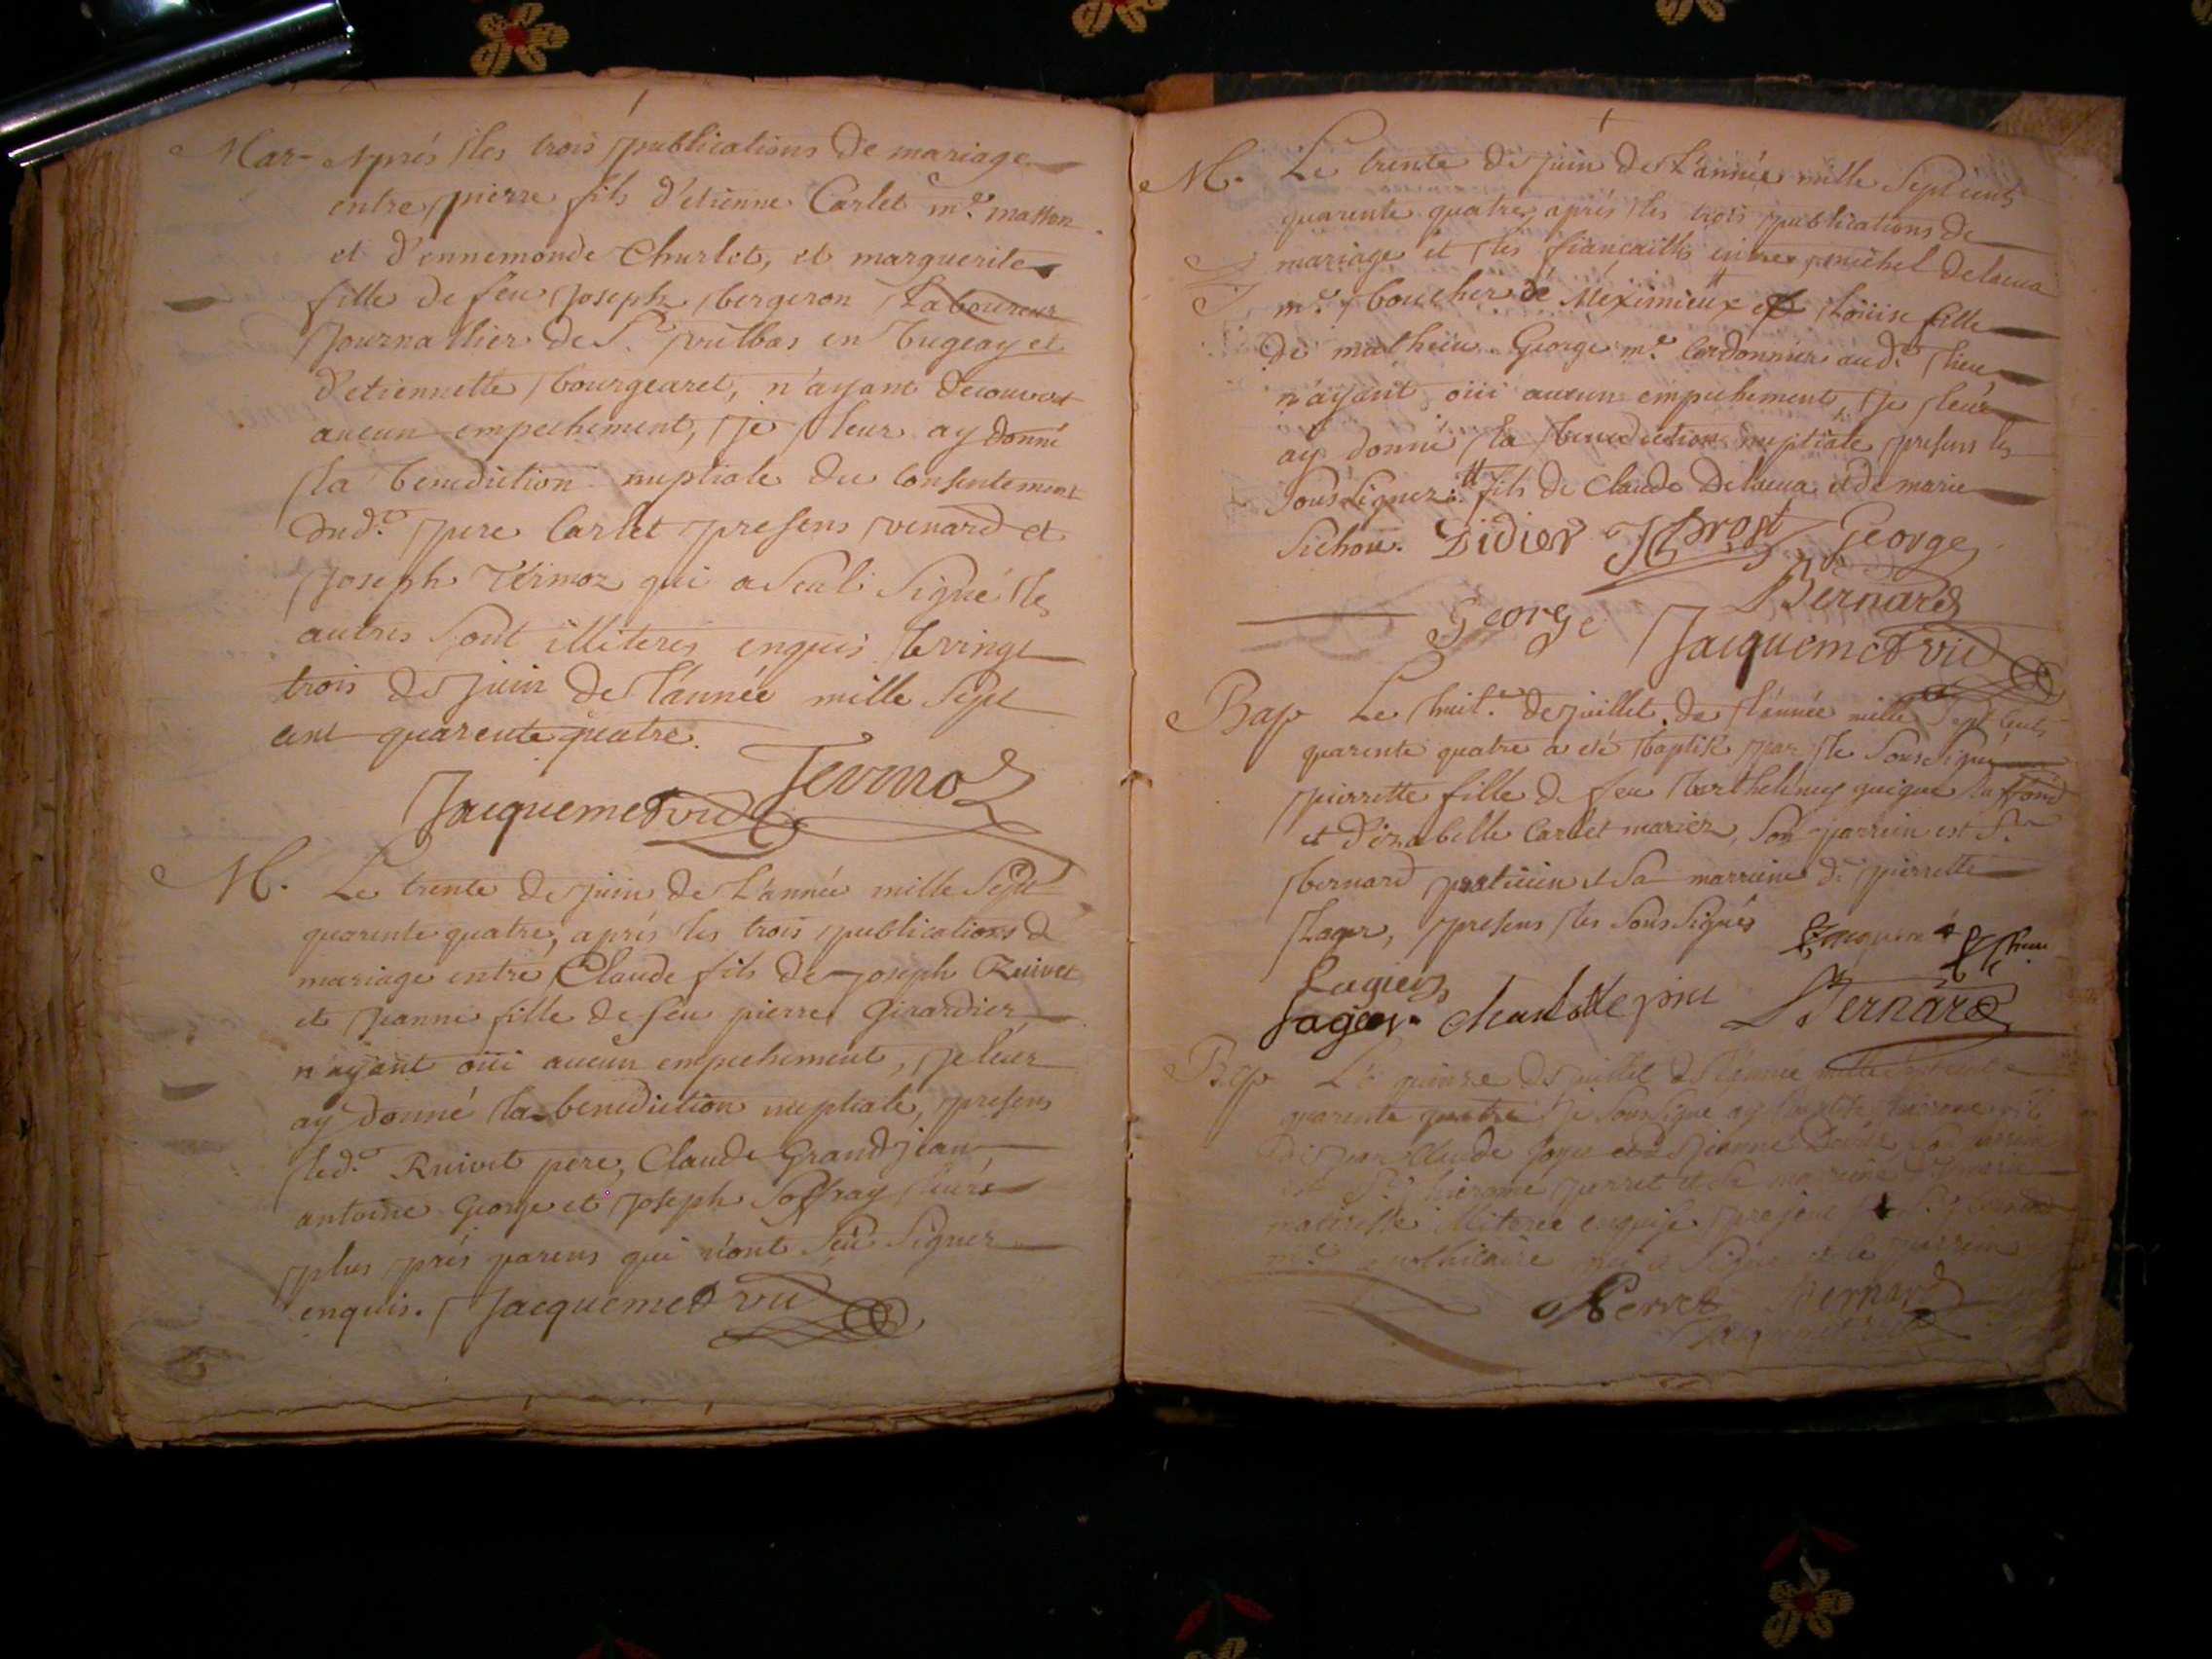 Mar- Aprés les trois publications de mariage
entre pierre fils d'etienne Carlet me. masson
et d'ennemonde Churlet, et marguerite
fille de feu joseph bergeron Laboureur
journallier de St. vulbas en bugeay et
d'etiennette bourgearet, n'ayant decouvert
aucun empechement, je leur ay donné
la benediction nuptiale du consentement
dud. pere Carlet presens venard et
joseph Termoz qui a seul signé les
autres sont illiteres enquis le vingt
trois de juin de l'année mille sept
cent quarente quatre.
Jacquemet vic Termoz
M. Le trente de juin de l'année mille sept
quarente quatre, aprés les trois publications de
mariage entre Claude fils de joseph Ruivet
et jeanne fille de feu pierre Girardier
n'ayant oüi aucun empechement, je leur
ay donné la benediction nuptiale, presens
led. Ruivet pere, Claude Grandjean,
antoine George et joseph Soffray leurs
plus prés parens qui n'ont sçu signer
enquis. Jacquemet vic
M. Le trente de juin de l'année mille sept cents
quarente quatre, aprés les trois publications de
mariage et les fiançailles entre michel Delacua
me. boucher de Meximieux et Loüise fille
de mathieu George me. Cordonnier aud. lieu
n'ayant oüi aucun empechement, je leur
ay donné la benediction nuptiale presens les
soussignez. fils de Claude Delacua et de marie
Sichon. Didier Prost George
Bernard
George Jacquemet vic
Bap Le huit. de juillet de l'année mille sept cents
quarente quatre a eté baptisé par le soussigné
pierrette fille de feu barthelemy guigue
et d'izabelle Carlet mariez, son parrein est Sr.
bernard praticien et sa marreine De. pierrette
Lager, presens les soussignés
Jacquemet
Lagier
Lager Bernard
Bap Le quinze de juillet de l'année mille sept cent
quarente quatre je soussigné ay baptisé
de jean Claude et de jeanne
Sr. hierome perret et sa marreine
illiterée enquise presens
me. qui a signé et le parrein
Perret Bernard